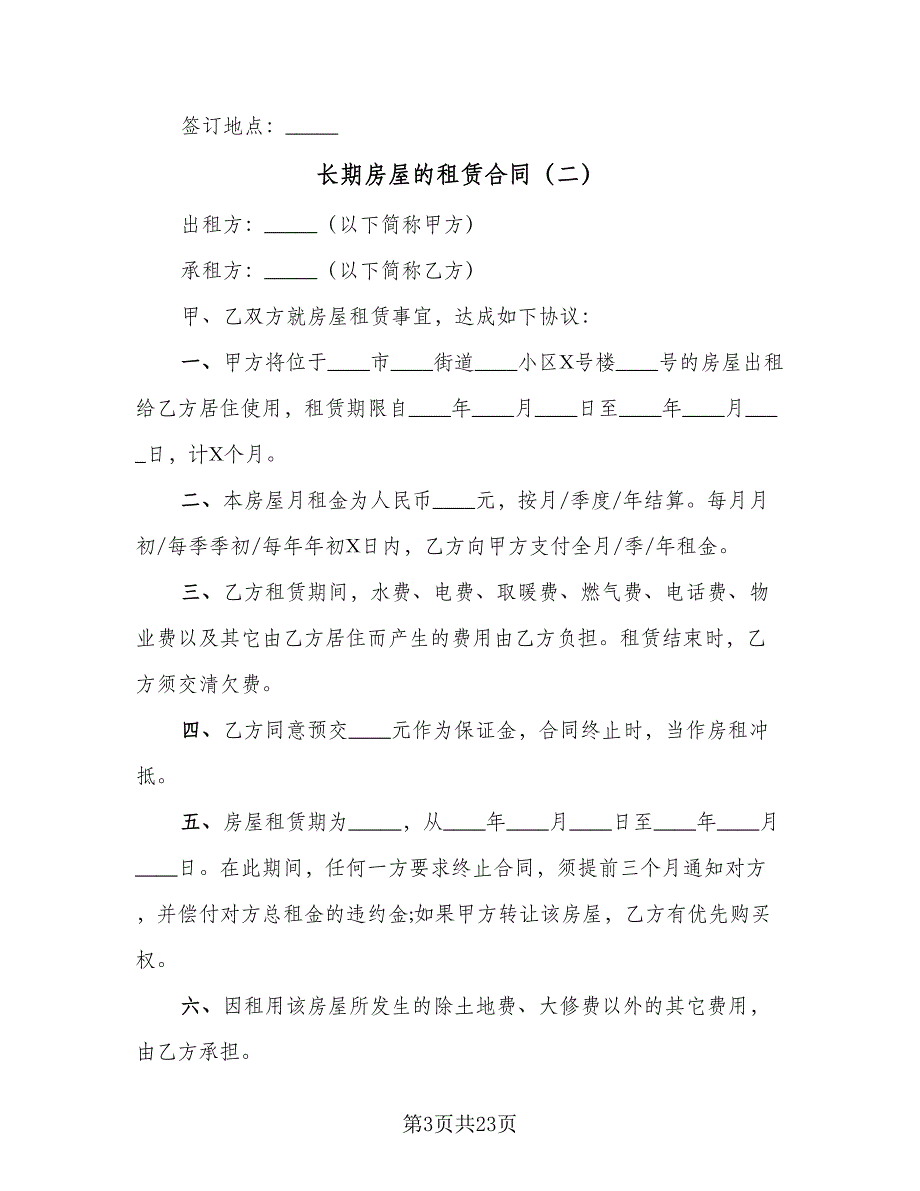 签订地点：_____
长期房屋的租赁合同（二）
出租方：_____（以下简称甲方）
承租方：_____（以下简称乙方）
甲、乙双方就房屋租赁事宜，达成如下协议：
一、甲方将位于____市____街道____小区X号楼____号的房屋出租
给乙方居住使用，租赁期限自____年____月____日至____年____月___
_日，计X个月。
二、本房屋月租金为人民币____元，按月/季度/年结算。每月月
初/每季季初/每年年初X日内，乙方向甲方支付全月/季/年租金。
三、乙方租赁期间，水费、电费、取暖费、燃气费、电话费、物
业费以及其它由乙方居住而产生的费用由乙方负担。租赁结束时，乙
方须交清欠费。
四、乙方同意预交____元作为保证金，合同终止时，当作房租冲
抵。
五、房屋租赁期为_____，从____年____月____日至____年____月
____日。在此期间，任何一方要求终止合同，须提前三个月通知对方
，并偿付对方总租金的违约金;如果甲方转让该房屋，乙方有优先购买
权。
六、因租用该房屋所发生的除土地费、大修费以外的其它费用，
由乙方承担。
第3页共23页